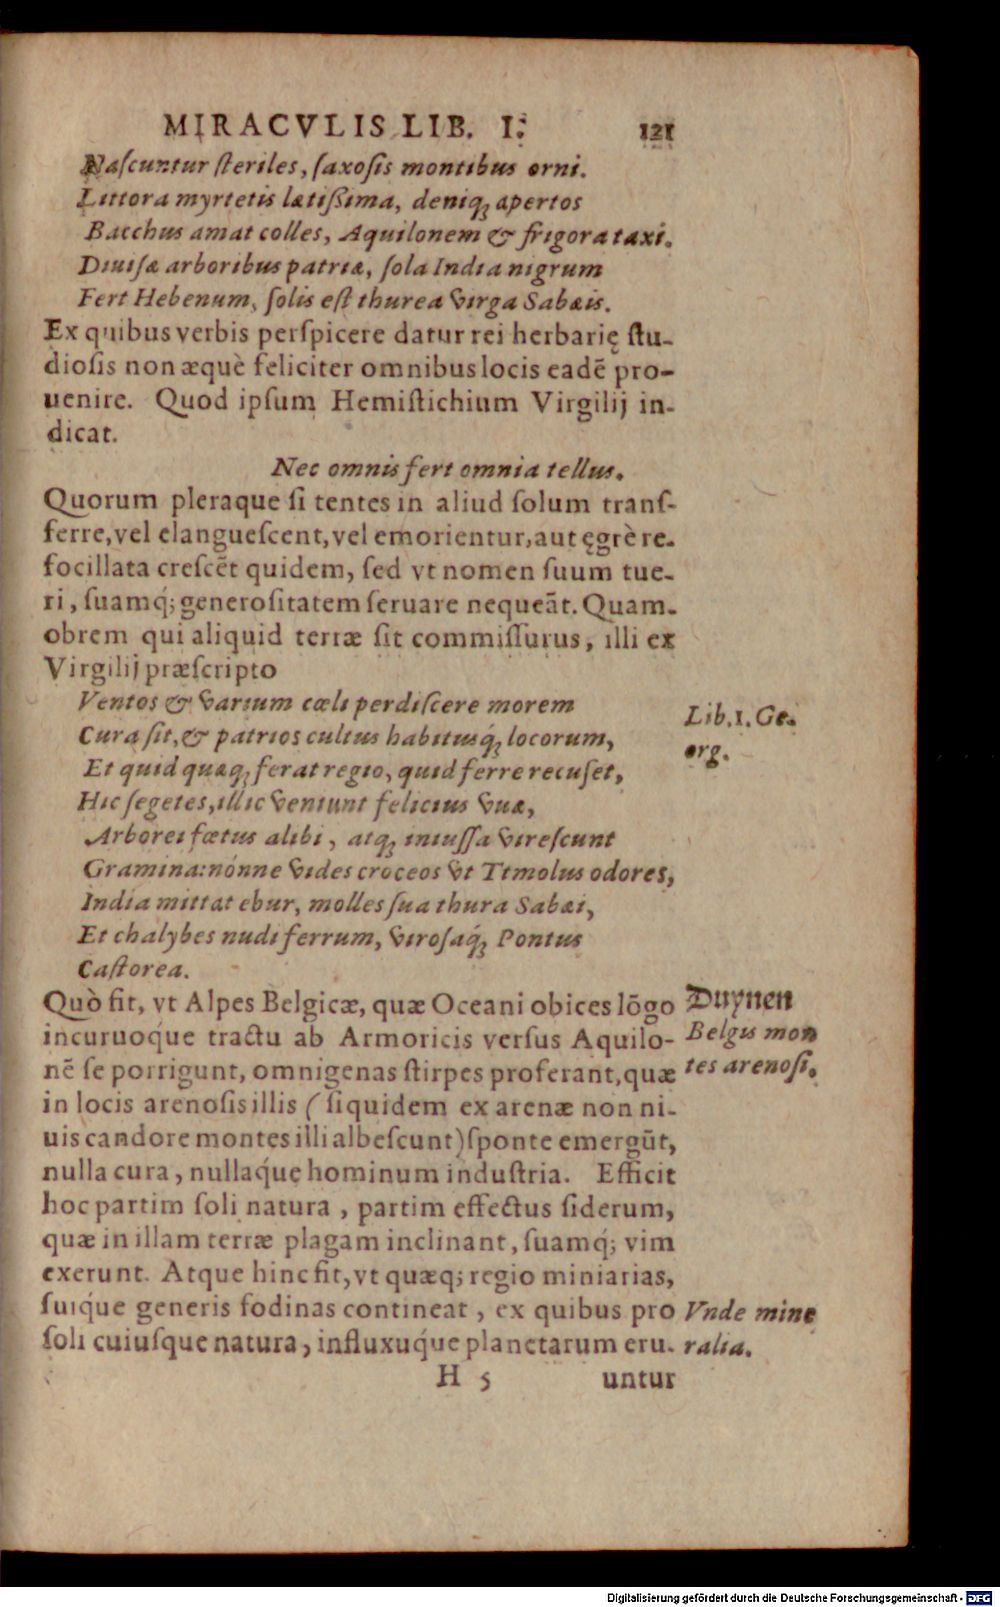 MIRACVLIS LIB. I. 121
Naſcuntur ſteriles, ſaxoſis montibus orni.
Littora myrtetis lætiſsima, deniq́ꝫ apertos
Bacchus amat colles, Aquilonem & frigora taxi.
Diuiſæ arboribus patriæ, ſola India nigrum
Fert Hebenum, ſolis eſt thurea virga Sabæis.
Ex quibus verbis perſpicere datur rei herbarię ſtu-
dioſis non æquè feliciter omnibus locis eadē pro-
uenire. Quod ipſum Hemiſtichium Virgilij in-
dicat.
Nec omnis fert omnia tellus.
Quorum pleraque ſi tentes in aliud ſolum tranſ-
ferre, vel elangueſcent, vel emorientur, aut ęgrè re-
focillata creſcēt quidem, ſed vt nomen ſuum tue-
ri, ſuamq́; generoſitatem ſeruare nequeāt. Quam-
obrem qui aliquid terræ ſit commiſſurus, illi ex
Virgilij præſcripto
Ventos & varium cœli perdiſcere morem
Cura ſit, & patrios cultus habitusq́ꝫ locorum,
Lib. 1. Ge-
org.
Et quid quæqꝫ ferat regio, quid ferre recuſet,
Hic ſegetes, illic veniunt felicius vuæ,
Arborei fœtus alibi, atqꝫ iniuſſa vireſcunt
Gramina: nónne vides croceos vt Tmolus odores,
India mittat ebur, molles ſua thura Sabæi,
Et chalybes nudi ferrum, viroſaq́ꝫ Pontus
Caſtorea.
Quò fit, vt Alpes Belgicæ, quæ Oceani obices lōgo
incuruoque tractu ab Armoricis verſus Aquilo-
nē ſe porrigunt, omnigenas ſtirpes proferant, quæ
Duynen
Belgis mon
tes arenoſi.
in locis arenoſis illis (ſiquidem ex arenæ non ni-
uis candore montes illi albeſcunt) ſponte emergūt,
nulla cura, nullaq́ue hominum induſtria. Efficit
hoc partim ſoli natura, partim effectus ſiderum,
quæ in illam terræ plagam inclinant, ſuamq́; vim
exerunt. Atque hinc fit, vt quæq; regio miniarias,
ſuiq́ue generis fodinas contineat, ex quibus pro
ſoli cuiuſque natura, influxuq́ue planetarum eru-
Vnde mine
ralia.
H 5 untur
Digitalisierung gefördert durch die Deutsche Forschungsgemeinschaft - DFG